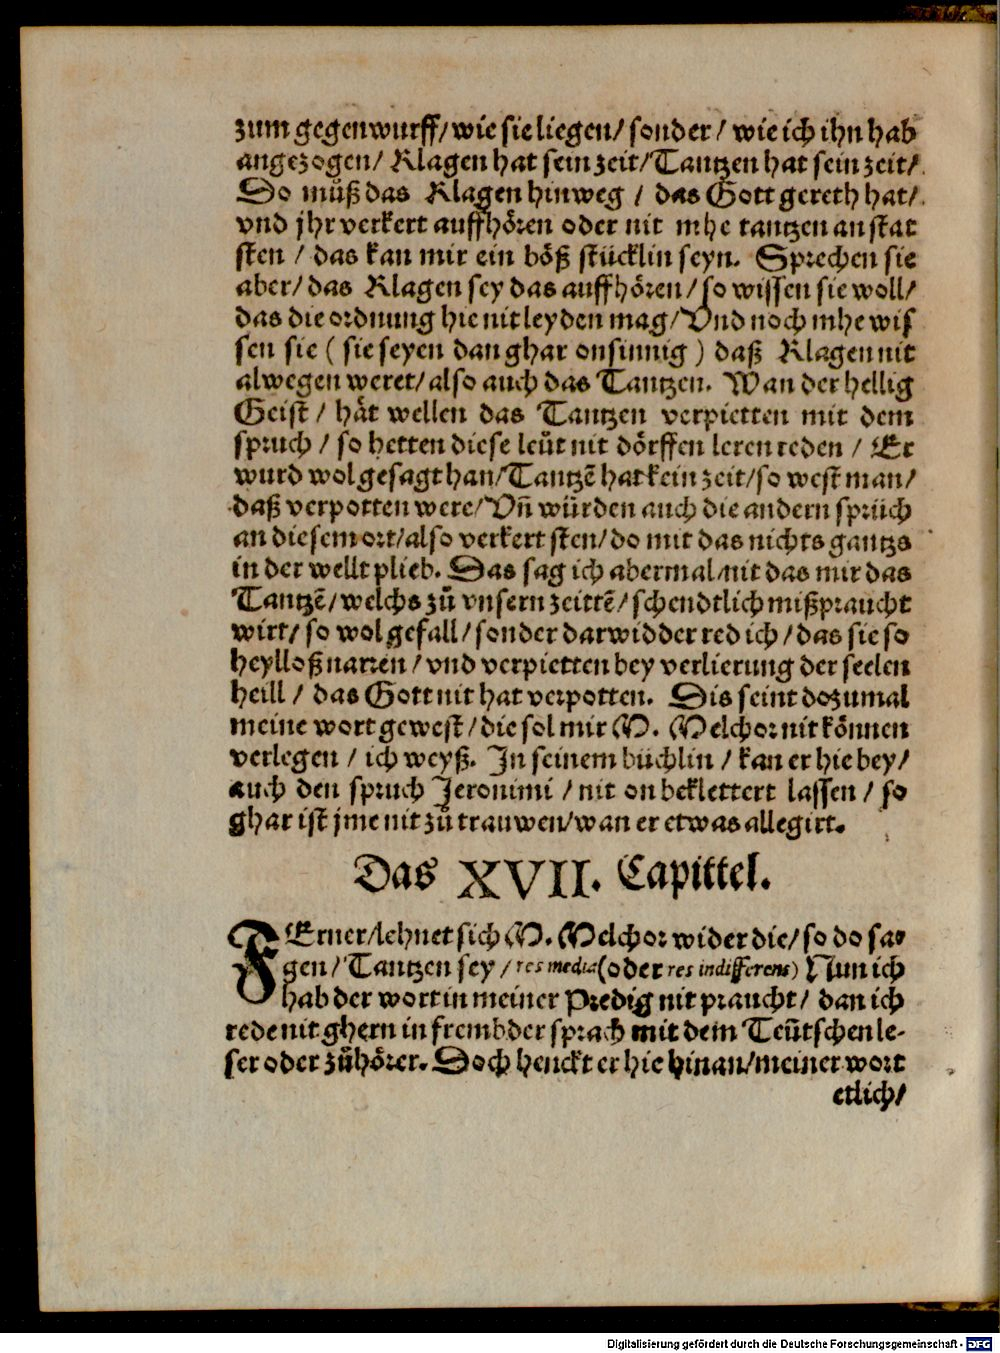 zum gegenwurff/ wie sie liegen/ sonder/ wie ich ihn hab
angezogen/ Klagen hat sein zeit/ Tantzen hat sein zeit/
So muͤß das Klagen hinweg / das Gott gereth hat/
vnd jhr verkert auffhoͤren oder nit mhe tantzen an stat
sten / das kan mir ein boͤß stuͤcklin seyn. Sprechen sie
aber/ das Klagen sey das auffhoͤren/ so wissen sie woll/
das die ordnung hie nit leyden mag/ Vnd noch mhe wis
sen sie ( sie seyen dan ghar onsinnig ) daß Klagen nit
alwegen weret/ also auch das Tantzen. Wan der hellig
Geist / haͤt wellen das Tantzen verpietten mit dem
spruch / so hetten diese leuͤt nit doͤrffen leren reden / Er
wurd wol gesagt han/ Tantzē hat kein zeit/ so west man/
daß verpotten were/ Vñ wuͤrden auch die andern spruͤch
an diesem ort/ also verkert sten/ do mit das nichts gantzs
in der wellt plieb. Das sag ich abermal/ nit das mir das
Tantzē/ welchs zuͦ vnsern zeittē/ schendtlich mißpraucht
wirt/ so wol gefall/ sonder darwidder red ich/ das sie so
heylloß narren/ vnd verpietten bey verlierung der seelen
heill / das Gott nit hat verpotten. Dis seint dozumal
meine wort gewest/ die sol mir M. Melchor nit koͤnnen
verlegen / ich weyß. In seinem buͤchlin / kan er hie bey/
auch den spruch Jeronimi / nit on beklettert lassen / so
ghar ist jme nit zuͦ trauwen/ wan er etwas allegirt.
Das XVII. Capittel.
FErner/ lehnet sich M. Melchor wider die/ so do sa-
gen/ Tantzen sey / res media (oder res indifferens) Nun ich
hab der wort in meiner Predig nit praucht/ dan ich
rede nit ghern in frembder sprach mit dem Teuͤtschen le-
ser oder zuͦhoͤrer. Doch henckt er hie hinan/ meiner wort
etlich/
Digitalisierung gefördert durch die Deutsche Forschungsgemeinschaft - DFG